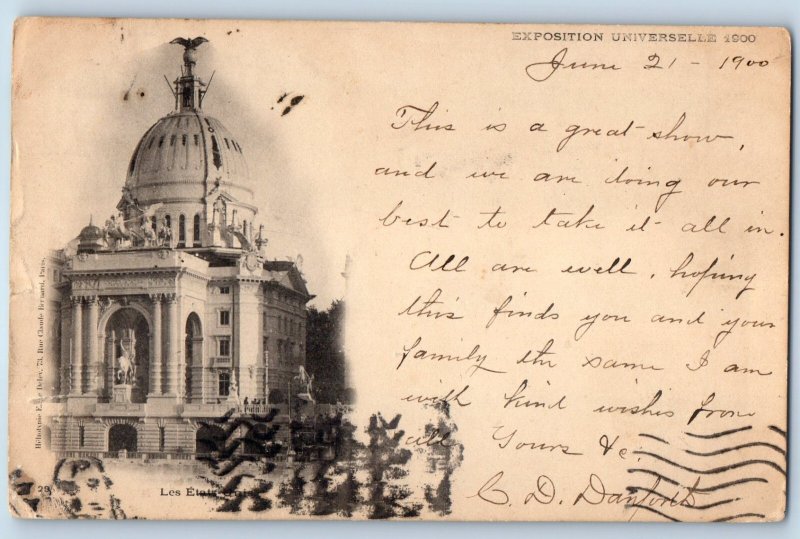 EXPOSITION UNIVERSELLE 1900
June 21 - 1900
This is a great show,
and we are doing our
best to take it all in.
All are well, hoping
this finds you and your
family the same I am
with kind wishes from
all Yours &c.
C. D. Danforth
Héliotypie E. Le Deley, 73, Rue Claude Bernard, Paris.
29
Les États